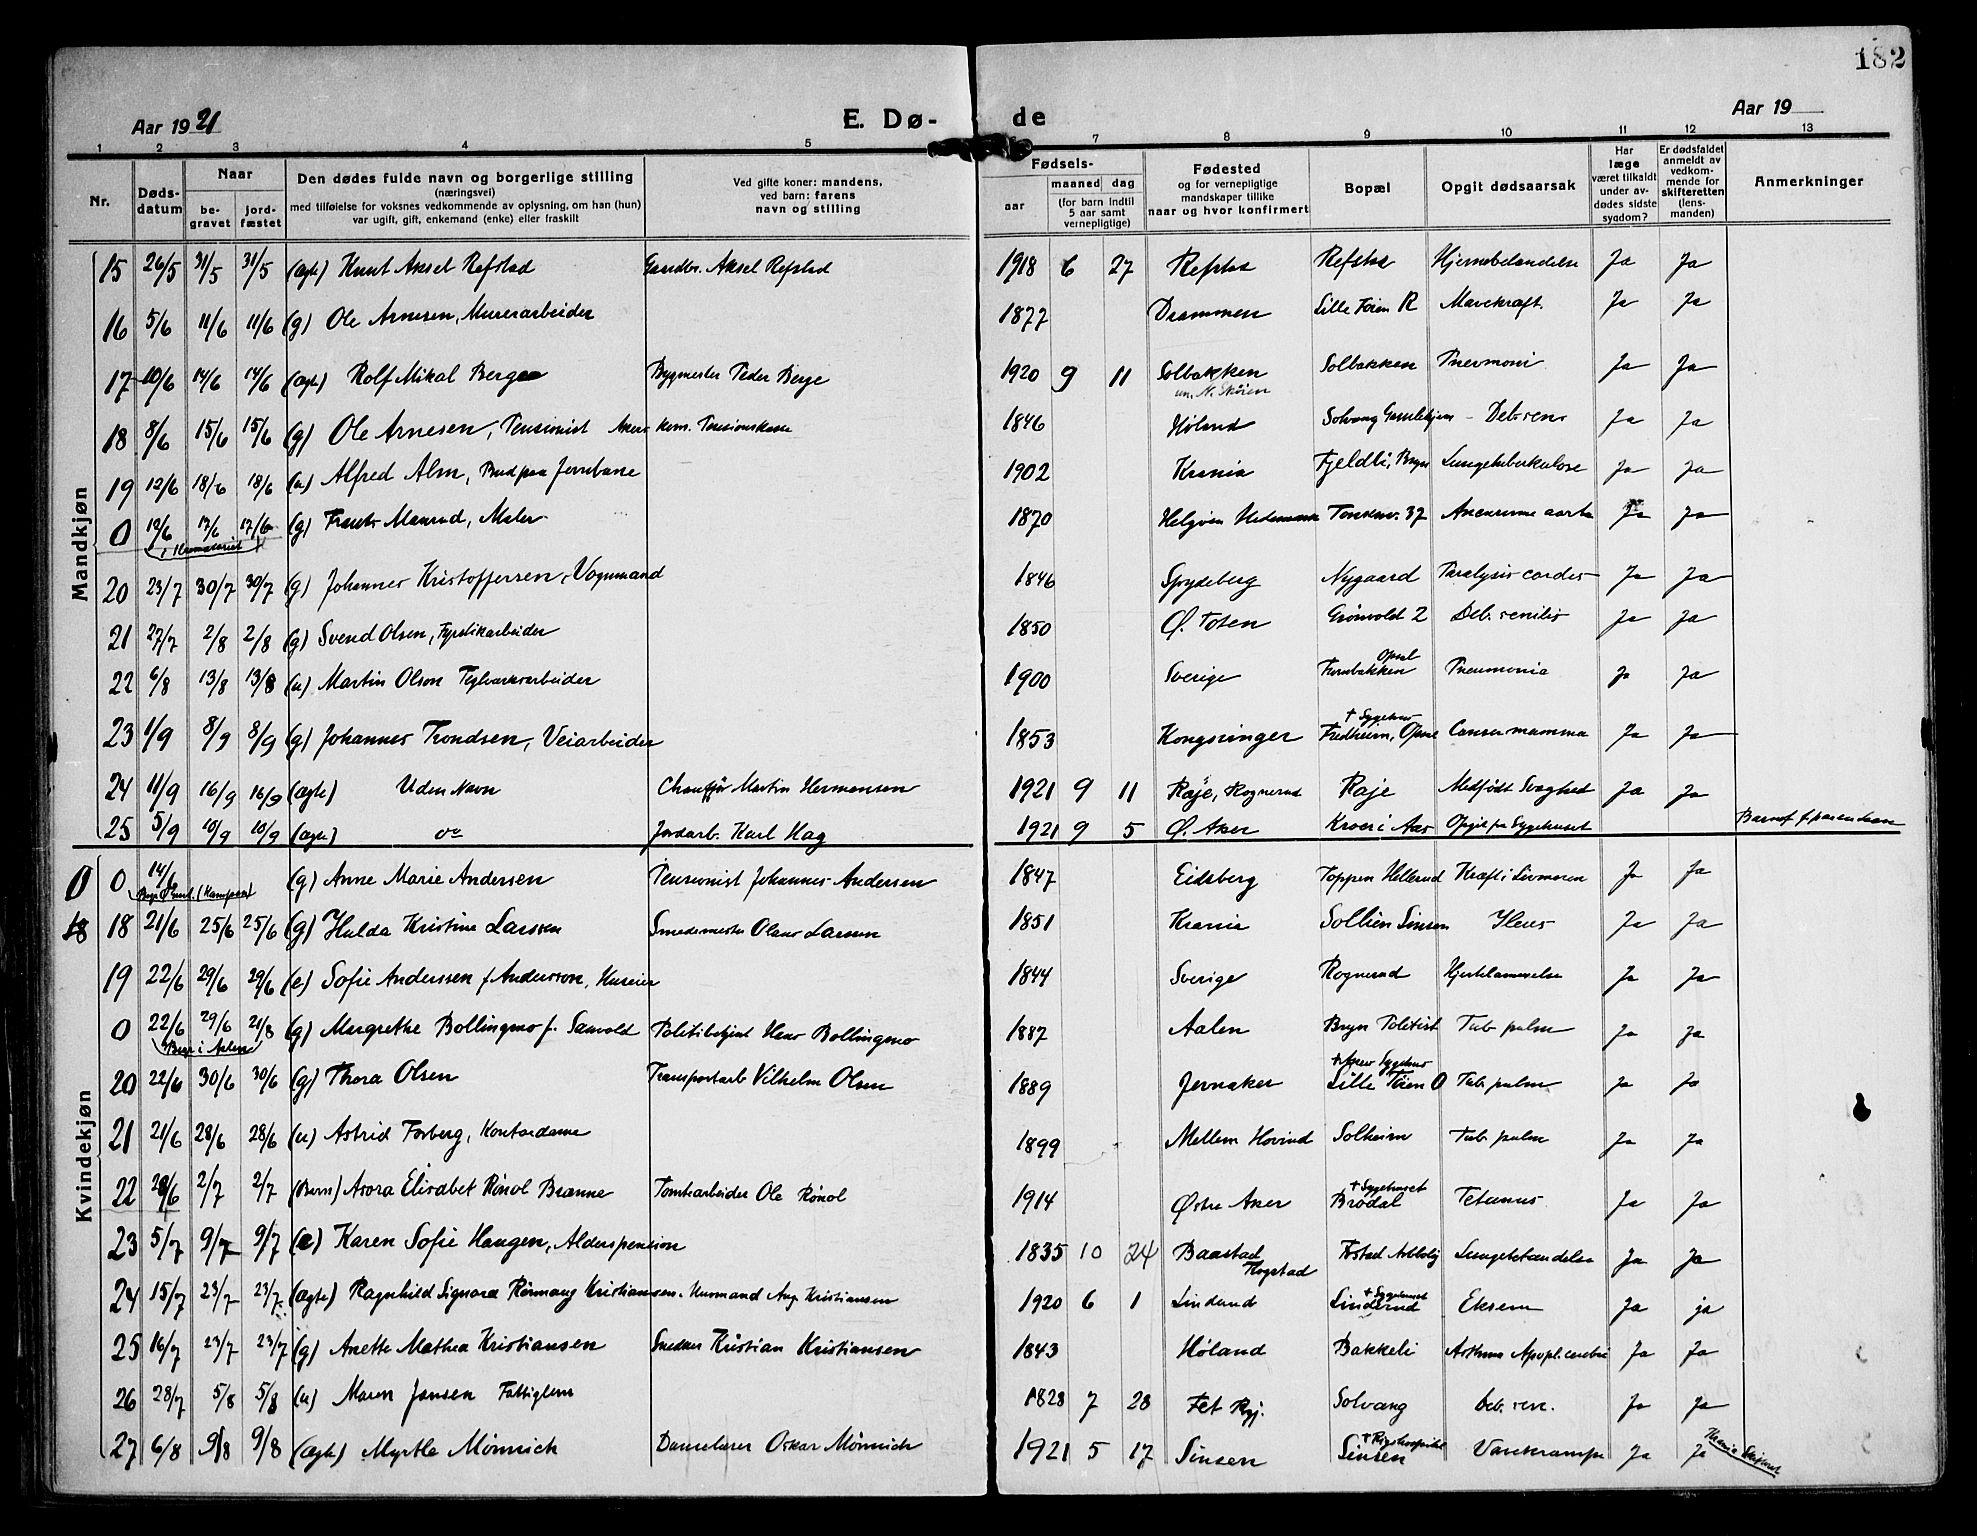 182
Aar 1921
E. Dø-
de
Aar 19
1 2 3 4 5 7 8 9 10 11 12 13
Nr.
Døds-
datum
Naar
be-
gravet
jord-
fæstet
Den dødes fulde navn og borgerlige stilling
(næringsvei)
med tilføielse for voksnes vedkommende av oplysning, om han (hun)
var ugift, gift, enkemand (enke) eller fraskilt
Ved gifte koner: mandens,
ved barn: farens
navn og stilling
Fødsels-
aar
maaned dag
(for barn indtil
5 aar samt
vernepligtige)
Fødested
og for vernepligtige
mandskaper tillike
naar og hvor konfirmert
Bopæl
Opgit dødsaarsak
Har
læge
været tilkaldt
under av-
dødes sidste
sygdom?
Er dødsfaldet
anmeldt av
vedkom-
mende for
skifteretten
(lens-
manden)
Anmerkninger
Mandkjøn
15 26/5 31/5 31/5 (ægte) Knut Aksel Refstad Gaardbr. Aksel Refstad 1918 6 27 Refstad Refstad Hjernebetændelse Ja Ja
16 5/6 11/6 11/6 (g) Ole Arnesen, Murerarbeider 1877 Drammen Lille Tøien R Mavekræft. Ja Ja
17 10/6 14/6 14/6 (ægte) Rolf Mikal Berge Bygmester Peder Berge 1920 9 11 Solbakken Solbakken Pnevmoni Ja Ja
18 8/6 15/6 15/6 (g) Ole Arnesen, Pensionist Akers kom. Pensionskasse 1846 Høland Solvang Gamlehjem Deb. sen. Ja Ja
19 12/6 18/6 18/6 (u) Alfred Alm, Bud paa Jernbane 1902 Krania Fjeldli, Bryn Lungetuberkulose Ja Ja
0 12/6 17/6 17/6 (g) Frants Maurud, Maler 1870 Tonsenv. 37 Aneurisme aorta Ja Ja
i Krematoriet
20 23/7 30/7 30/7 (g) Johannes Kristoffersen, Vognmand 1846 Spydeberg Nygaard Paralysis cordis Ja Ja
21 27/7 2/8 2/8 (g) Svend Olsen, Fyrstikarbeider 1850 Ø. Toten Grønvold 2 Deb. senilis Ja Ja
22 6/8 13/8 13/8 (u) Martin Olson Teglverksarbeider 1900 Sverige Furubakken Opsal Pneumonia Ja Ja
23 1/9 8/9 8/9 (g) Johannes Trondsen, Veiarbeider 1853 Kongsvinger † Sygehus Fredheim, Opsal Cancer mamma Ja Ja
24 11/9 16/9 16/9 (ægte) Uden Navn Chauffør Martin Hermansen 1921 9 11 Raje, Rognerud Raje Medfødt Svaghed Ja Ja
25 5/9 10/9 10/9 (ægte) do Jordarb. Karl Hag 1921 9 5 Ø. Aker Kroer i Aas Opgit fra Sygehuset
Kvindekjøn
0 0 14/6 (g) Anne Marie Andersen Pensionist Johannes Andersen 1847 Eidsberg Toppen Hellerud Kræft i Livmoren Ja Ja
18 18 21/6 25/6 25/6 (g) Hulda Kristine Larssen Smedemester Olaus Larsen 1851 Krania Sollien Sinsen Ileus Ja Ja
19 22/6 29/6 29/6 (e) Sofie Anderssen f. Andersson, Huseier 1844 Sverige Rognerud Hjertelammelse Ja Ja
0 22/6 29/6 21/8 (g) Margrethe Bollingmo f. Sæwold Politibetjent Hans Bollingmo 1887 Aalen Bryn Politist Tub. pulm Ja Ja
Begr. i Aalen
20 22/6 30/6 30/6 (g) Thora Olsen Transportarb Vilhelm Olsen 1889 Jevnaker † Aker Sygehus Lille Tøien O Tub. pulm Ja Ja
21 21/6 28/6 28/6 (u) Astrid Forberg, Kontordame 1899 Mellem Hovind Solheim Tub. pulm Ja Ja
22 28/6 2/7 2/7 (Barn) Asora Elisabet Rönol Brænne Tomtarbeider Ole Rönol 1914 Østre Aker † Sygehuset Brodal Tetanus Ja Ja
23 5/7 9/7 9/7 (e) Karen Sofie Haugen, Alderspension 1835 10 24 Baastad Trøgstad Lungebetændelse Ja Ja
24 15/7 23/7 23/7 (ægte) Ragnhild Signora Rørmang Kristiansen. Husmand Aug Kristiansen 1920 6 1 Linderud † Sygehuset Linderud Eksem Ja ja
25 16/7 23/7 23/7 (g) Anette Mathea Kristiansen Snedker Kristian Kristiansen 1843 Høland Bakkeli Asthma Apopl. cerebri Ja Ja
26 28/7 5/8 5/8 (u) Maren Jansen Fattiglem 1828 7 28 Fet Rgj. Solvang Deb. sen. Ja Ja
27 6/8 9/8 9/8 (ægte) Myrtle Mønnich Danselærer Oskar Mønnich 1921 5 17 Sinsen † Rigshospitalet Sinsen Vanekrampe Ja Ja